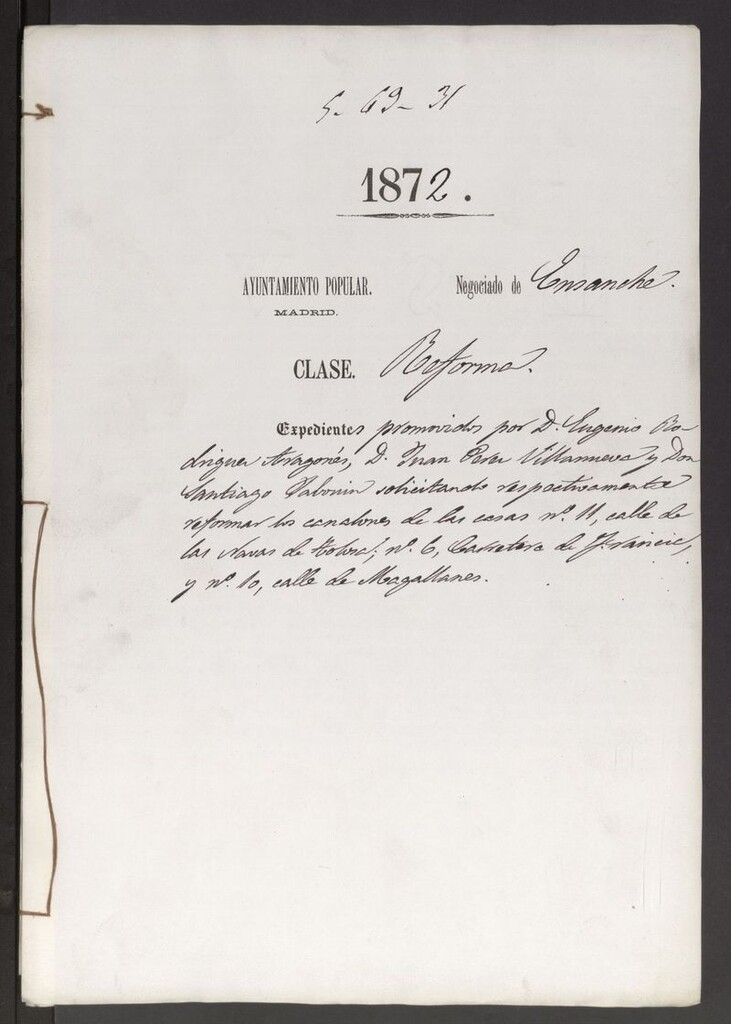 5-69-31
1872.
AYUNTAMIENTO POPULAR.
MADRID.
Negociado de Ensanche.
CLASE. Reforma.
Expedientes promovidos por D. Eugenio Ro-
driguez Aragonés, D. Juan Perez Villanueva y Don
Santiago solicitando respectivamente
reformar los canalones de las casas nº. 11, calle de
las Navas de Tolosa; nº. 6, Carretera de Francia,
y nº. 10, calle de Magallanes.